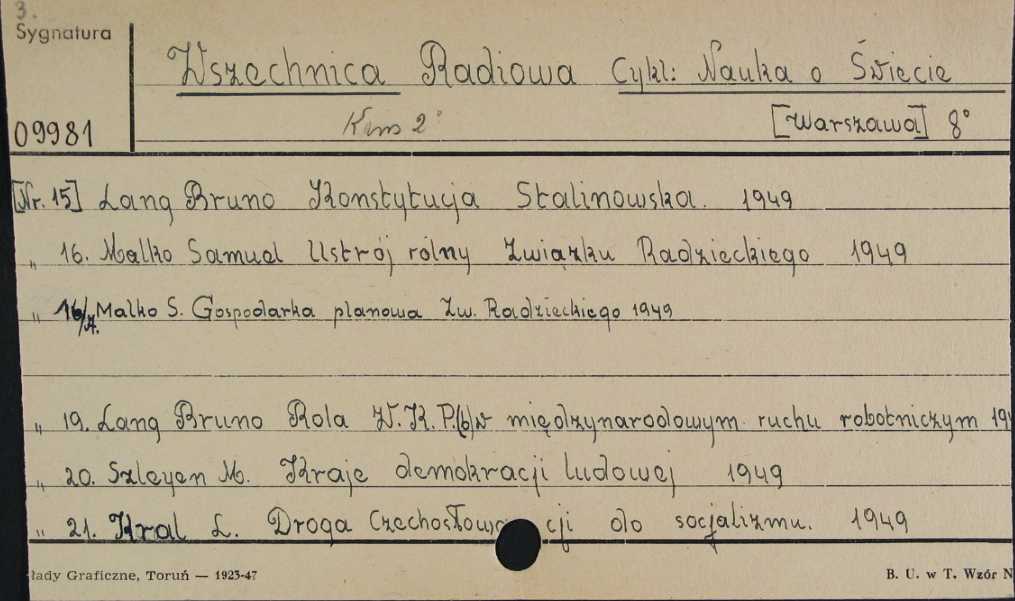 3.
Sygnatura
Wszechnica Radiowa Cykl: Nauka o Świecie
09981 Kurs 2° [Warszawa] 8°
[Nr. 15] Lang Bruno Konstytucja Stalinowska. 1949
„ 16. Malko Samuel Ustrój rolny Związku Radzieckiego 1949
„ 16/A. Malko S. Gospodarka planowa Zw. Radzieckiego 1949
„ 19. Lang Bruno Rola W.K.P.(b) w międzynarodowym ruchu robotniczym 19
„ 20. Szleyen M. Kraje demokracji ludowej 1949
„ 21. Kral L. Droga Czechosłowacji do socjalizmu. 1949
łady Graficzne, Toruń — 1923-47 B. U. w T. Wzór N